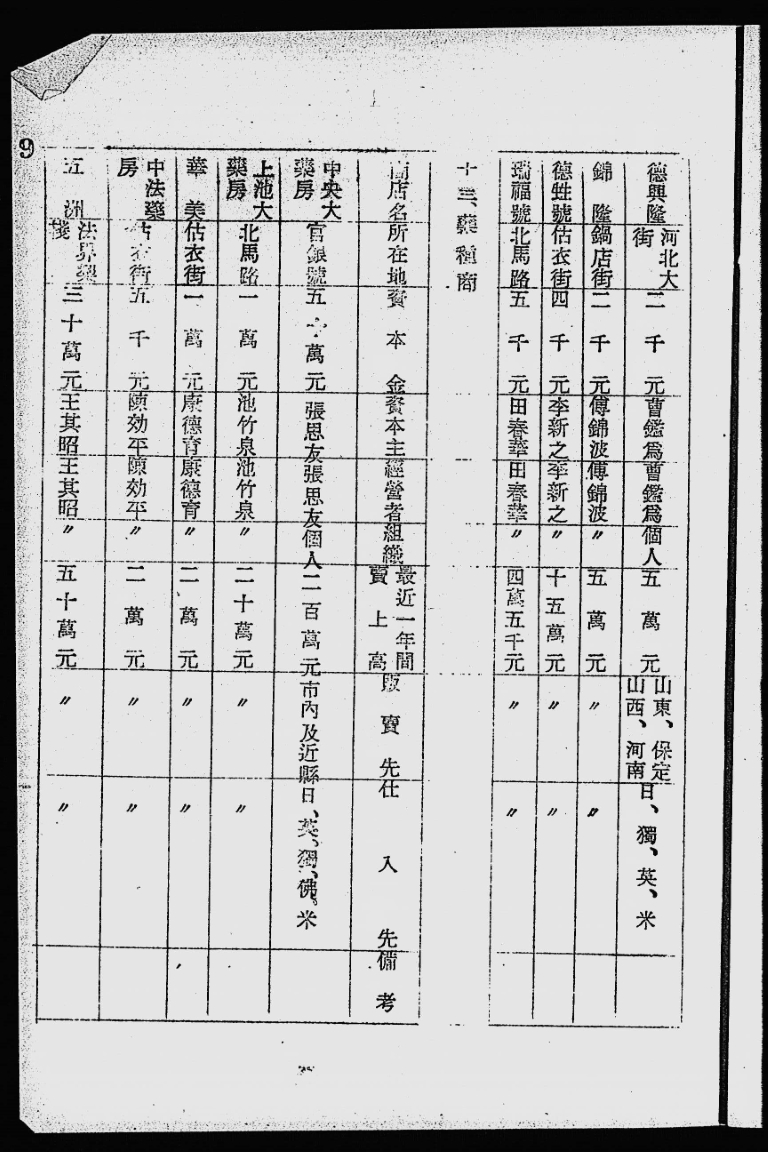 德興隆 河北大街 二千元 曹鑑爲 曹鑑爲 個人 五萬元 山東、保定山西、河南 日、獨、英、米
錦隆 鍋店街 二千元 傅錦波 傅錦波 〃 五萬元 〃 〃
德甡號 估衣街 四千元 李新之 李新之 〃 十五萬元 〃 〃
瑞福號 北馬路 五千元 田春華 田春華 〃 四萬五千元 〃 〃
十三、藥種商
商店名 所在地 資本金 資本主 經營者 組織 最近一年間賣上高 販賣先 仕入先 備考
中央大藥房 官銀號 五十萬元 張思友 張思友 個人 二百萬元 市內及近縣 日、英、獨、佛。米
上池大藥房 北馬路 一萬元 池竹泉 池竹泉 〃 二十萬元 〃 〃
華美 估衣街 一萬元 康德育 康德育 〃 二萬元 〃 〃
中法藥房 估衣街 五千元 陳効平 陳効平 〃 二萬元 〃 〃
五洲 法界藥棧 三十萬元 王其昭 王其昭 〃 五十萬元 〃 〃
9